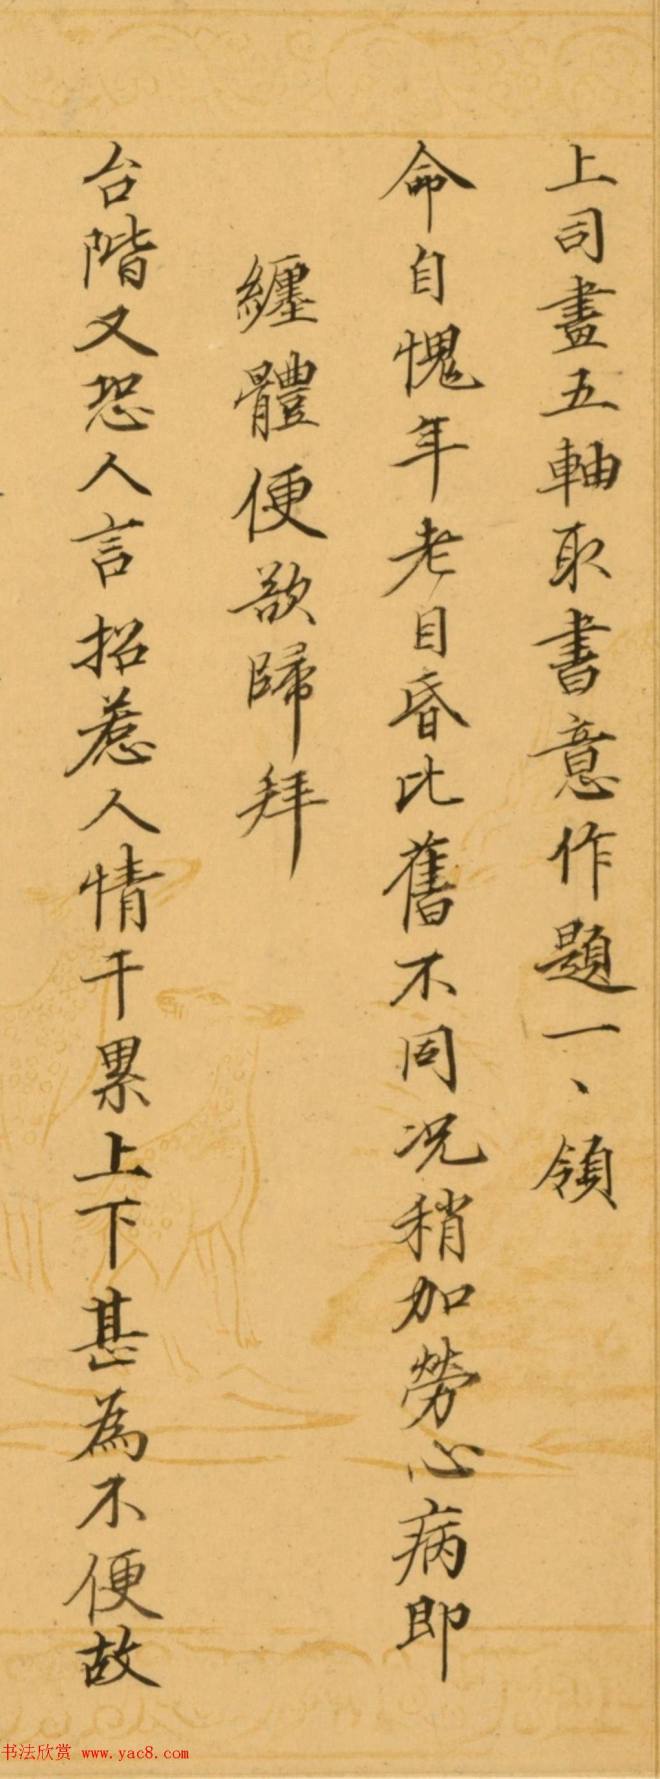 上司畫五軸取書意作題一、領
命自愧年老目昏比舊不同況稍加勞心病即
纏體便欲歸拜
台階又恐人言招惹人情干累上下甚為不便故
书法欣赏 www.yac8.com